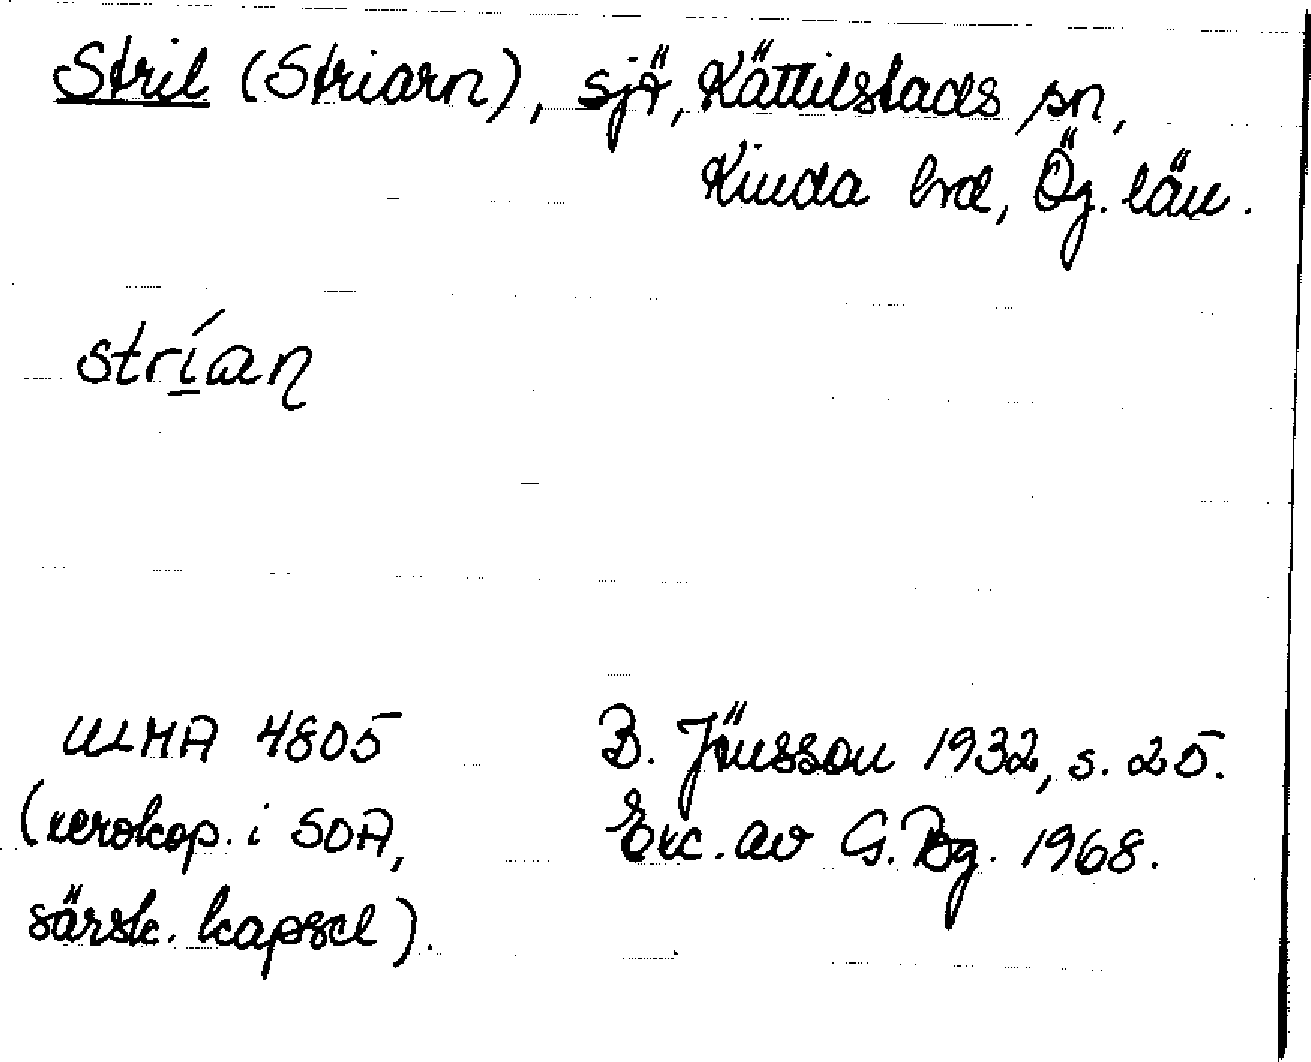 Stril (Striarn), sjö, Kättilstads sn,
Kinda hrd, Ög. län.
strían
ULMA 4805
(xerokop. i SOA,
särsk. kapsel).
B. Jönsson 1932, s. 25.
Exc. av G. Bg. 1968.